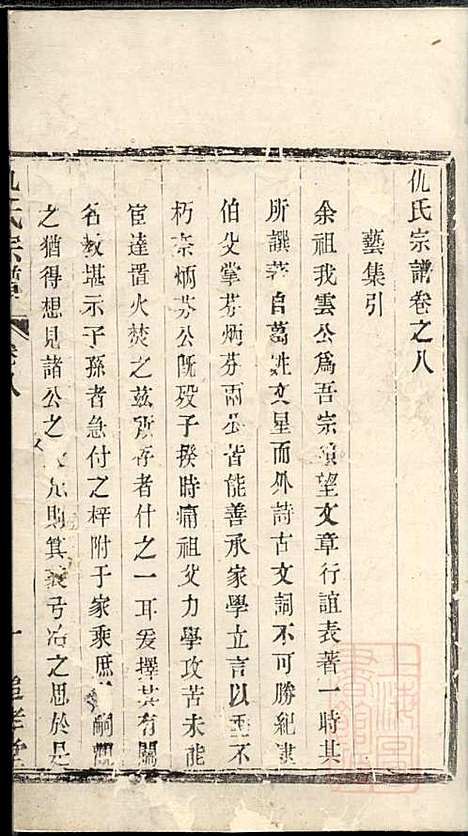 仇氏宗譜卷之八
藝集引
余祖我雲公爲吾宗望文章行誼表著一時其
所譔著自葛文星而外詩古文詞不可勝紀逮
伯父掌芬炳芬兩公皆能善承家學立言以垂不
朽奈炳芬公旣歿子揆時痛祖父力學攻苦未能
宦達置火焚之茲所存者什之一耳爰擇其有關
名教堪示子孫者急付之梓附于家乘庶嗣觀
之猶得想見諸公之則箕裘弓冶之思於是
仇氏宗譜
卷八
一
追孝堂
上海圖書館藏